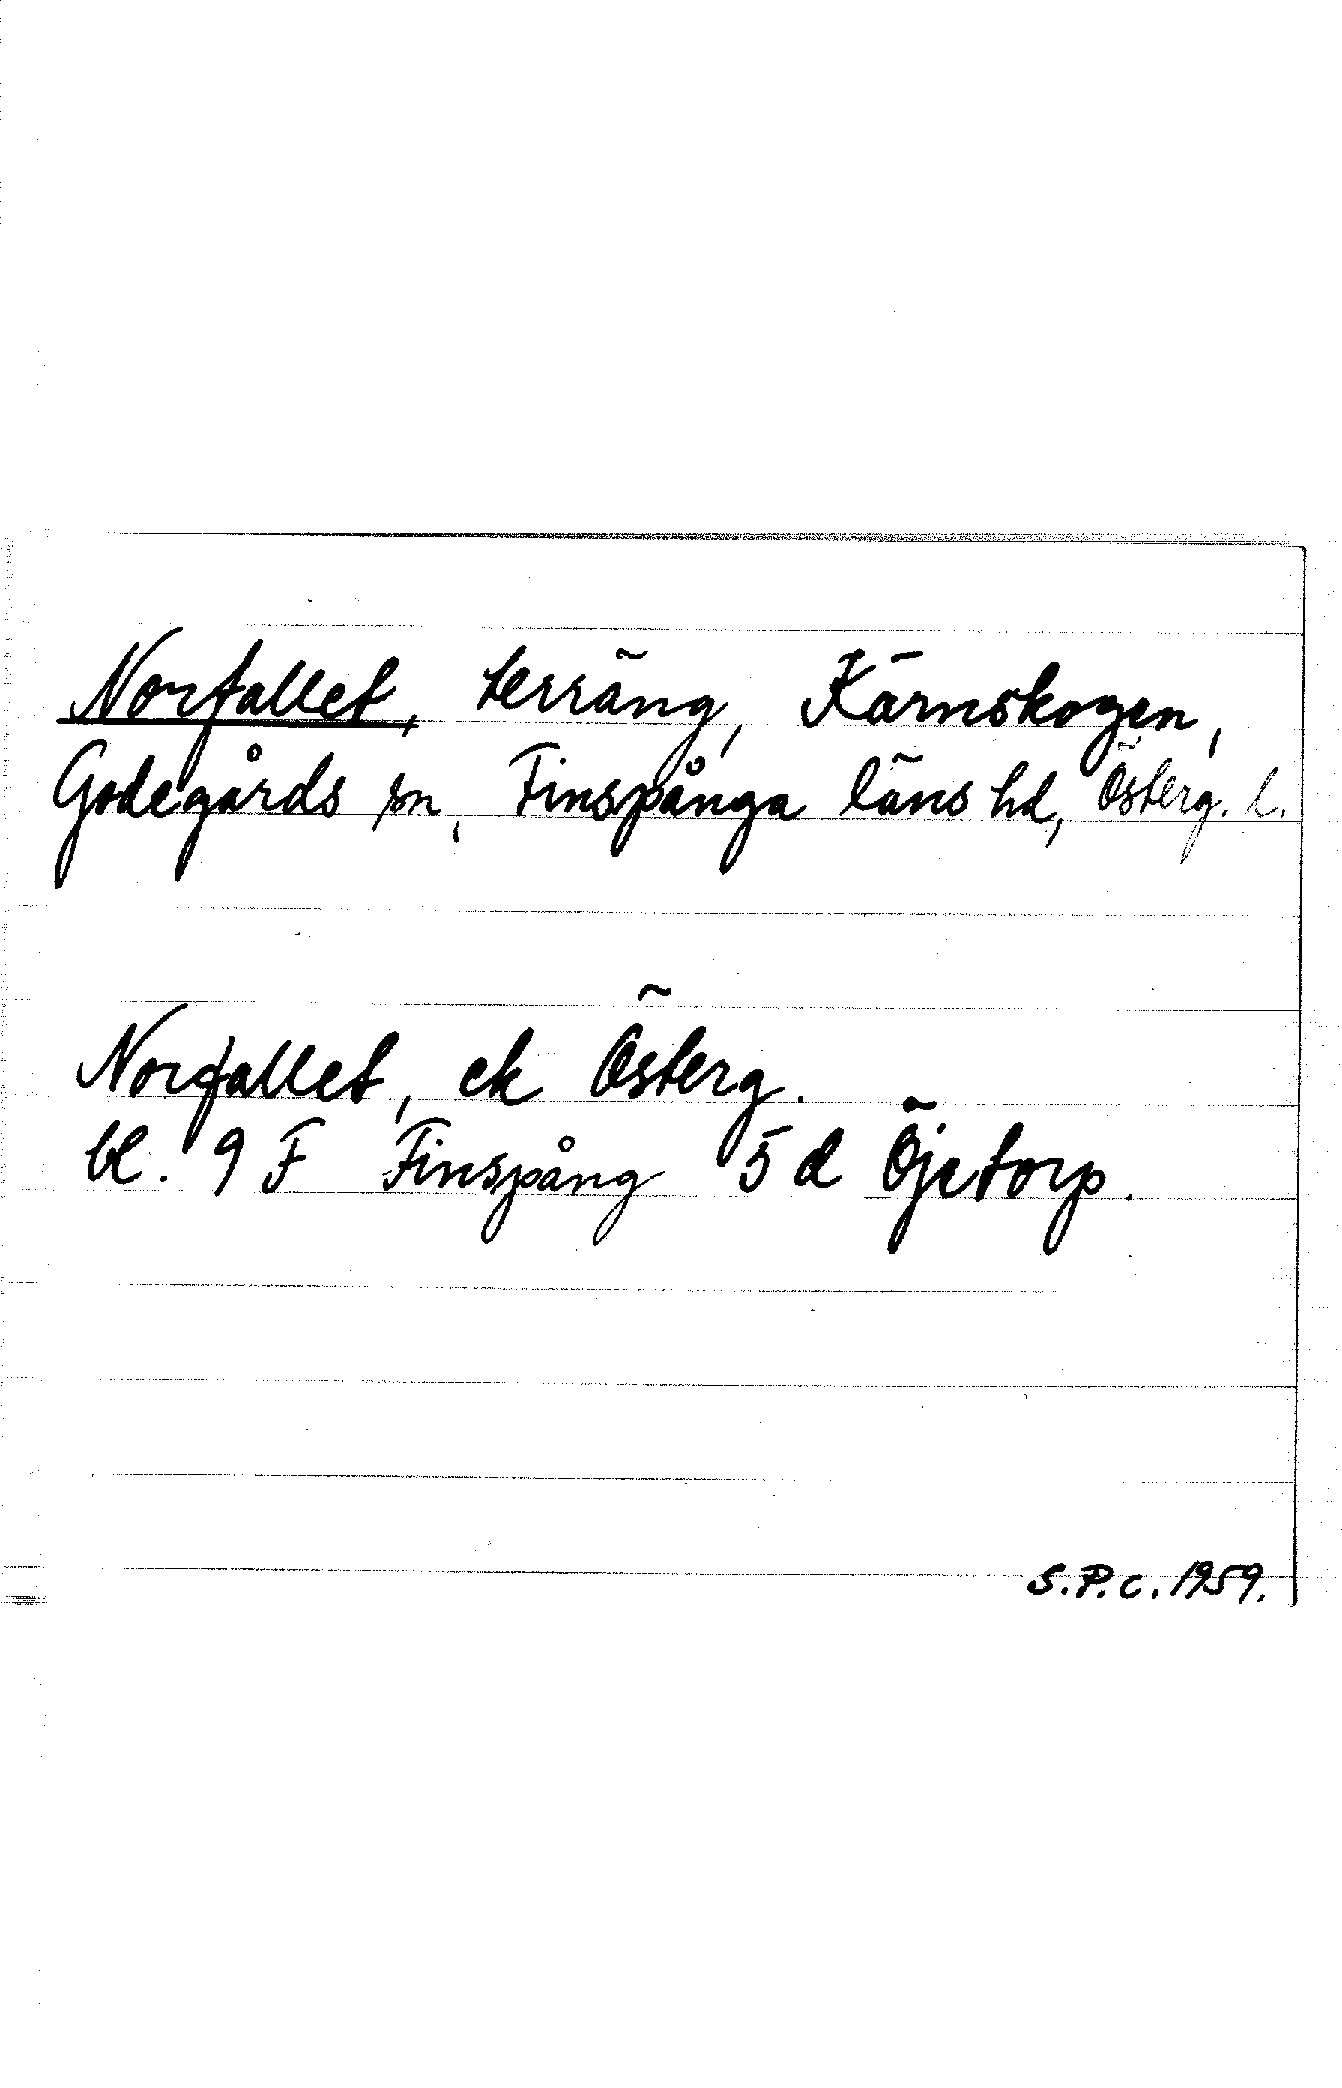 Norfallet, terräng, Kärnskogen,
Godegårds sn, Finspånga läns hd, Österg. l.
Norfallet, ek Österg.
bl. 9 F Finspång 5 d Öjetorp.
S.P.C. 1959.